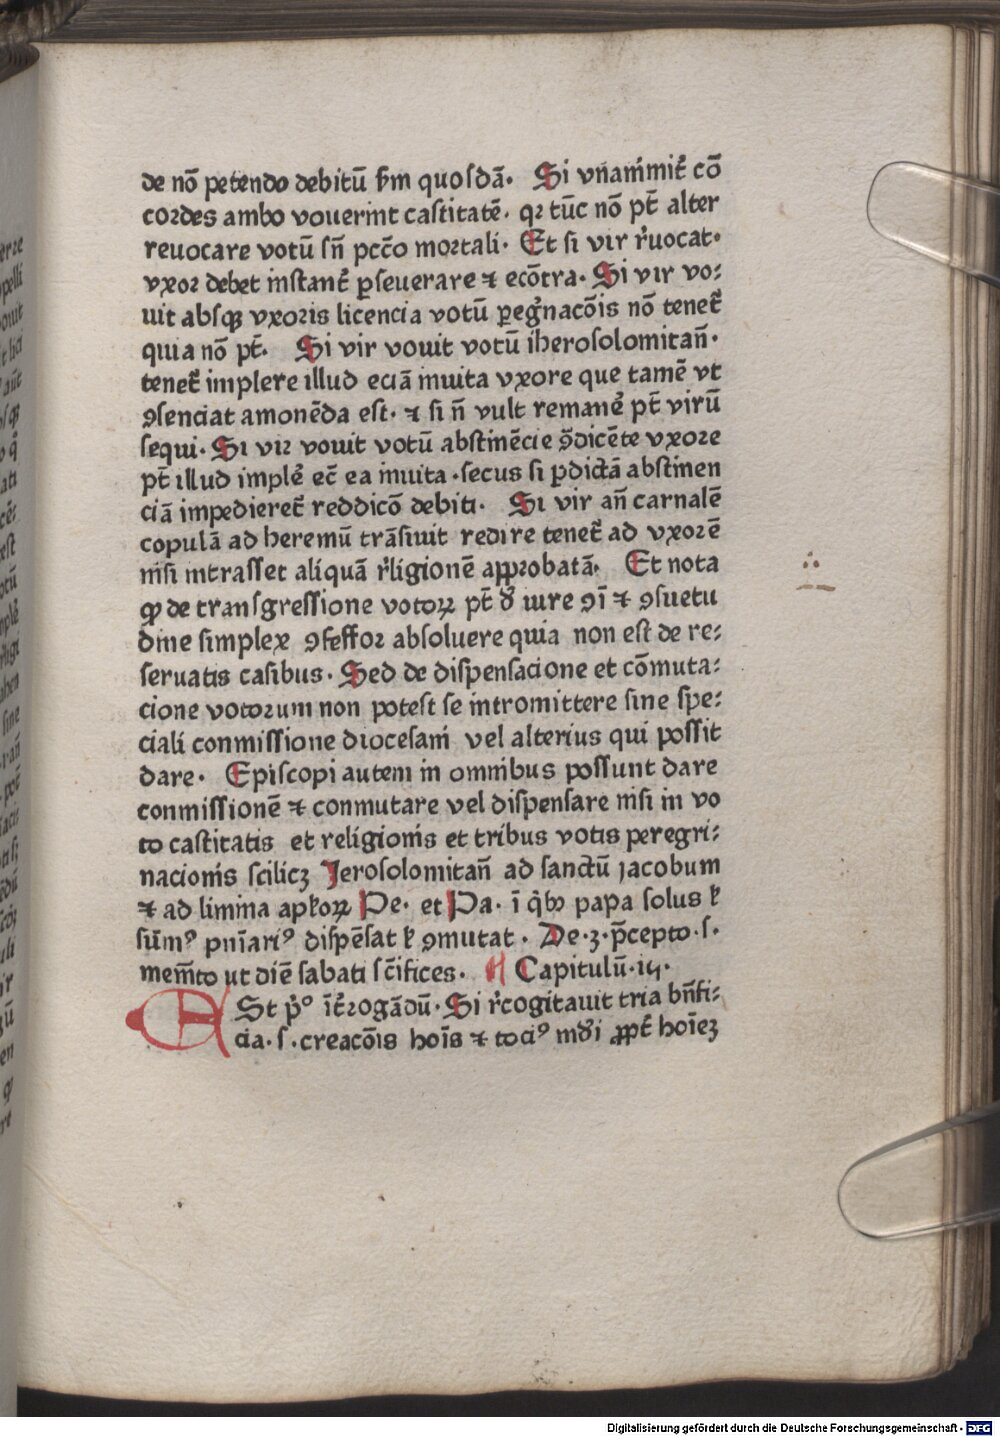 de nō petendo debitū ẜm quosdā. Si vnanimit̄ cō
cordes ambo vouerint castitatē. qꝛ tūc nō pt̄ alter
reuocare votū sn̄ pcc̄o mortali. Et si vir r̄uocat.
vxor debet instant̄ ꝑseuerare ⁊ ecōtra. Si vir vo⸗
uit absqꝫ vxoris licencia votū ꝑegr̄nacōis nō tenet̄
quia nō pt̄. Si vir vouit votū iherosolomitan̄.
tenet̄ implere illud eciā inuita vxore que tamē vt
ꝯsenciat amonēda est. ⁊ si n̄ vult remane᷑ pt̄ virū
sequi. Si vir vouit votū abstinēcie ꝯ̄dicēte vxore
pt̄ illud imple᷑ ec̄ ea inuita .secus si p̄dictā abstinen
ciā impedieret̄ reddicō debiti. Si vir an̄ carnalē
copulā ad heremū trāsiuit redire tenet̄ ad vxorē
nisi intrasset aliquā r̄ligionē approbatā. Et nota
ꝙ de transgressione votoꝝ pt̄ de᷑ iure ꝯī ⁊ ꝯsuetu
dine simplex ꝯfessor absoluere quia non est de re⸗
seruatis casibus. Sed de dispensacione et cōmuta⸗
cione votorum non potest se intromittere sine spe⸗
ciali conmissione diocesani vel alterius qui possit
dare. Episcopi autem in omnibus possunt dare
conmissionē ⁊ conmutare vel dispensare nisi in vo
to castitatis et religionis et tribus votis peregri⸗
nacionis scilicꝫ Jerosolomitan̄ ad sanctū jacobum
⁊ ad limina apl̄oꝝ Pe. et Pa. ī qͥbꝫ papa solus ł
sūmꝰ pnīariꝰ dispēsat ł ꝯmutat. De .3. p̄cepto .s.
mem̄to ut diē sabati sc̄ifices. Capitulū .iij.
ESt pͥº īt̄rogādū. Si r̄cogitauit tria bn̄fi⸗
cia .s. creacōis hoīs ⁊ tociꝰ mūdi ꝓpt̄ hoīeꝫ
Digitalisierung gefördert durch die Deutsche Forschungsgemeinschaft - DFG